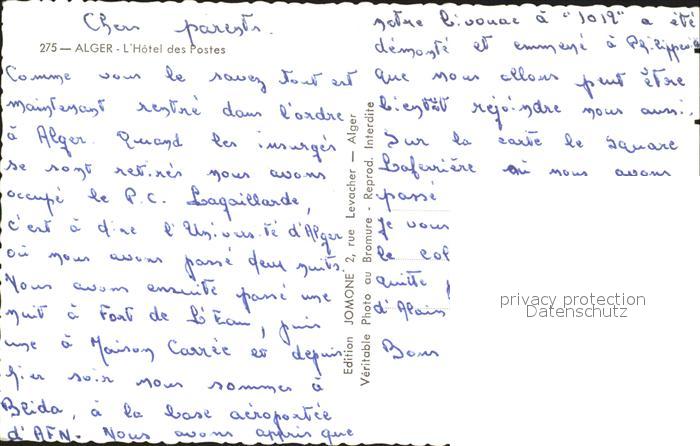 Chers parents.
275 — ALGER - L'Hôtel des Postes
Comme vous le savez tout est
maintenant rentré dans l'ordre
à Alger. Quand les insurgés
se sont retirés nous avons
occupé le P.C. Lagaillarde,
c'est à dire l'Université d'Alger
où nous avons passé deux nuits
Nous avons ensuite passé une
nuit à Fort de L'Eau, puis
une à Maison Carrée et depuis
hier soir nous sommes à
Blida, à la base aéroportée
d'AFN. Nous avons appris que
notre bivouac à "1019" a été
démonté et emmené à
que nous allons peut être
bientôt rejoindre nous aussi.
Sur la carte le square
Laferrière où nous avons
passé
Je vous
le col
quitte,
d'Alain
Bons
Edition JOMONE 2, rue Levacher — Alger
Véritable Photo au Bromure - Reprod. Interdite
privacy protection
Datenschutz